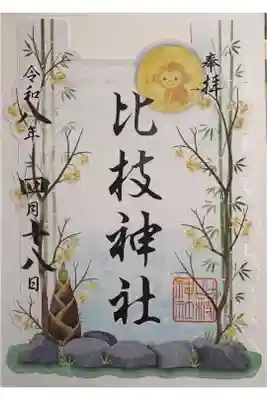 奉拝
比枝神社
令和八年四月十八日